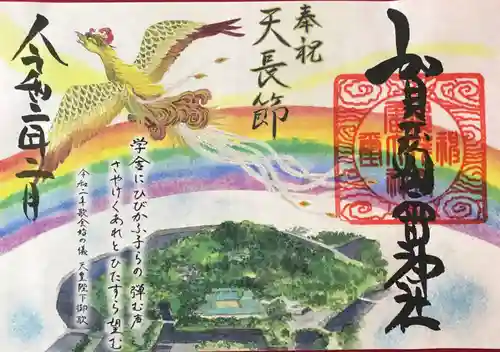 賀茂別雷神社
奉祝
天長節
学舎にひびかふ子らの弾む声
さやけくあれとひたすら望む
令和二年歌会始の儀 天皇陛下御歌
令和二年二月